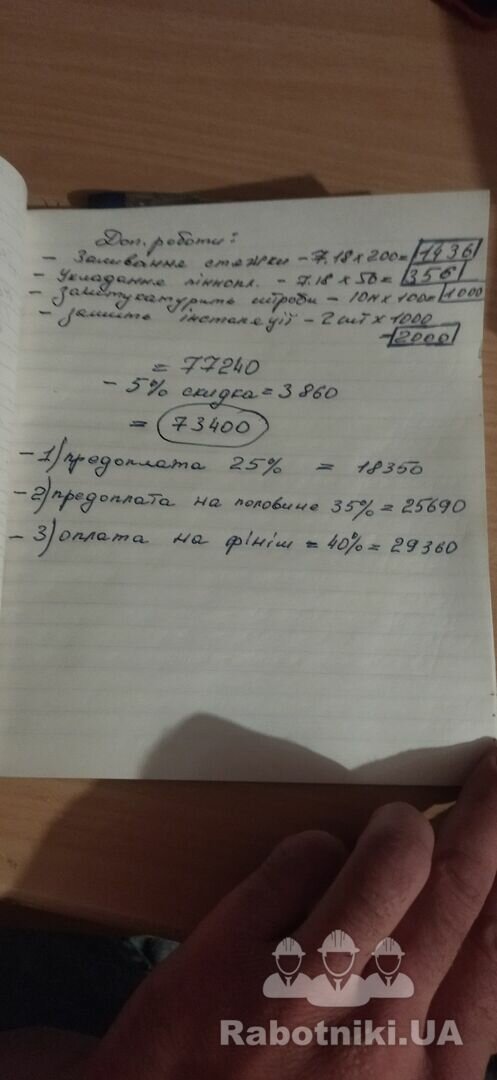 Доп. роботи:
- Заливання стяжки - 7.18 x 200 = 1436
- Укладання пінопл. - 7.18 x 50 = 356
- заштукатурить штроби - 10м x 100 = 1000
- зашить інсталяції - 2 шт x 1000
- 2000
= 77240
- 5% скидка = 3860
= 73400
- 1) предоплата 25% = 18350
- 2) предоплата на половине 35% = 25690
- 3) оплата на фініш = 40% = 29360
Rabotniki.UA